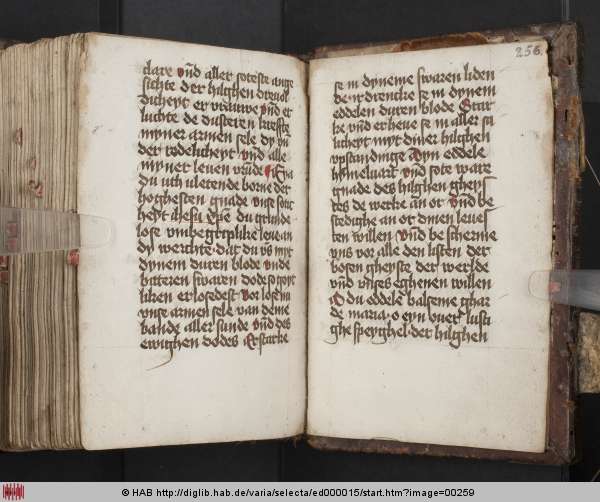 clare vnd aller soteste ange
sichte der hilghen drevol
dicheyt er vrauwe vnd er
luchte de dusteren kreffte
myner armen sele dy vn
der todelicheyt vnd alle
myner leuen vrude
du vth vletende borne der
hoghesten gnade vnse sote
heyt ihesu xpe du grunde
lose vnbegriplike leue an
dy werchte dat du vs myt
dynem duren blode vnde
bitteren swaren dode so
liken er losedest Vor lose nu
vnse armen sele van deme
bande aller sunde vnd des
ewighen dodes Erstarke
256
se in dyneme swaren liden
be vr drencke se in dynem
eddelen duren blode Star
ke vnd er heue se in aller sa
licheyt myt diner hilghen
vpstandinge Dyn eddele
hymeluart vnd sote ware
gnade des hilghen gheys
tes de werke an vs Vnd be
stedighe an vs dinen leues
ten willen Vnd be scherme
vns vor alle den listen der
bosen gheyste der werlde
vnd vnses eghenen willen
O du eddele balseme ghar
de maria o eyn vuer lusti
ghe speyghel der hilghen
© HAB http://diglib.hab.de/varia/selecta/ed000015/start.htm?image=00259